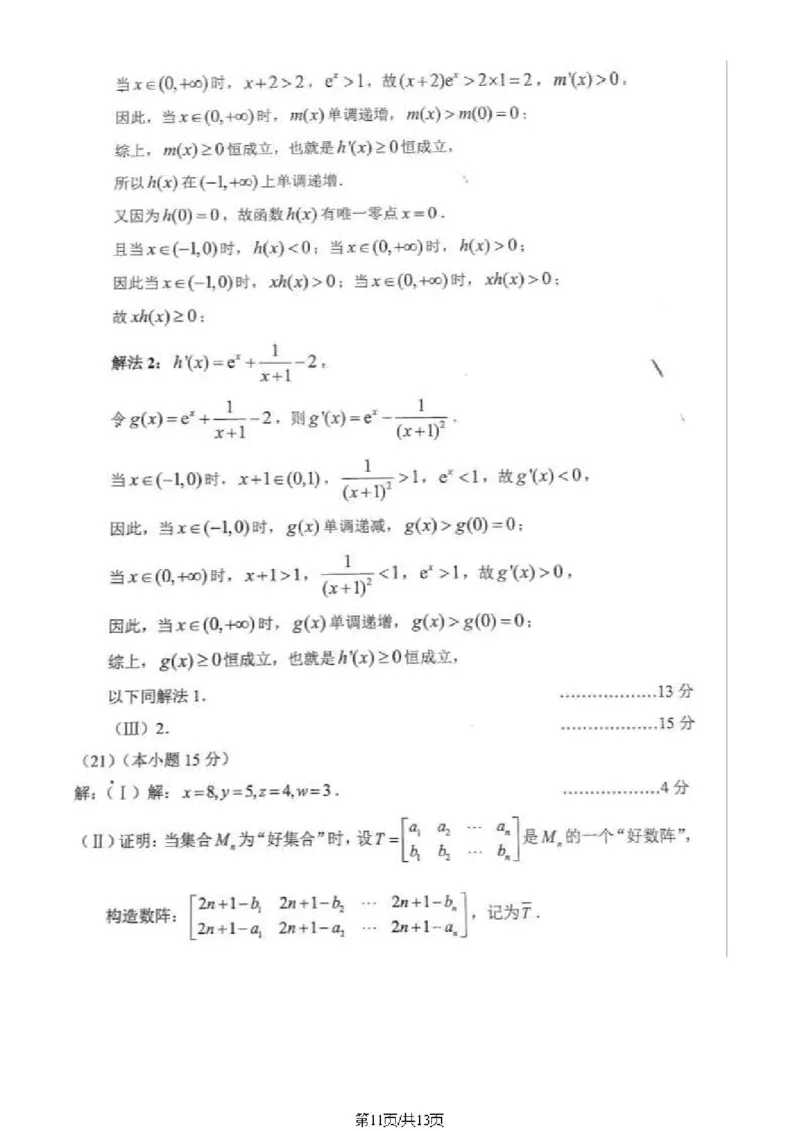 当x∈(0,+∞)时，x+2>2，eˣ>1，故(x+2)eˣ>2×1=2，m'(x)>0，
因此，当x∈(0,+∞)时，m(x)单调递增，m(x)>m(0)=0；
综上，m(x)≥0恒成立，也就是h'(x)≥0恒成立，
所以h(x)在(−1,+∞)上单调递增．
又因为h(0)=0，故函数h(x)有唯一零点x=0．
且当x∈(−1,0)时，h(x)<0；当x∈(0,+∞)时，h(x)>0；
因此当x∈(−1,0)时，xh(x)>0；当x∈(0,+∞)时，xh(x)>0；
故xh(x)≥0；
解法2：h'(x)=eˣ+1/(x+1)−2，
令g(x)=eˣ+1/(x+1)−2，则g'(x)=eˣ−1/(x+1)²．
当x∈(−1,0)时，x+1∈(0,1)，1/(x+1)²>1，eˣ<1，故g'(x)<0，
因此，当x∈(−1,0)时，g(x)单调递减，g(x)>g(0)=0；
当x∈(0,+∞)时，x+1>1，1/(x+1)²<1，eˣ>1，故g'(x)>0，
因此，当x∈(0,+∞)时，g(x)单调递增，g(x)>g(0)=0；
综上，g(x)≥0恒成立，也就是h'(x)≥0恒成立，
以下同解法1． ………………13分
（Ⅲ）2． ………………15分
（21）（本小题15分）
解：（Ⅰ）解：x=8,y=5,z=4,w=3． ………………4分
（Ⅱ）证明：当集合Mₙ为“好集合”时，设T=[a₁ a₂ ⋯ aₙ; b₁ b₂ ⋯ bₙ]是Mₙ的一个“好数阵”，
构造数阵：[2n+1−b₁ 2n+1−b₂ ⋯ 2n+1−bₙ; 2n+1−a₁ 2n+1−a₂ ⋯ 2n+1−aₙ]，记为T̅．
第11页/共13页